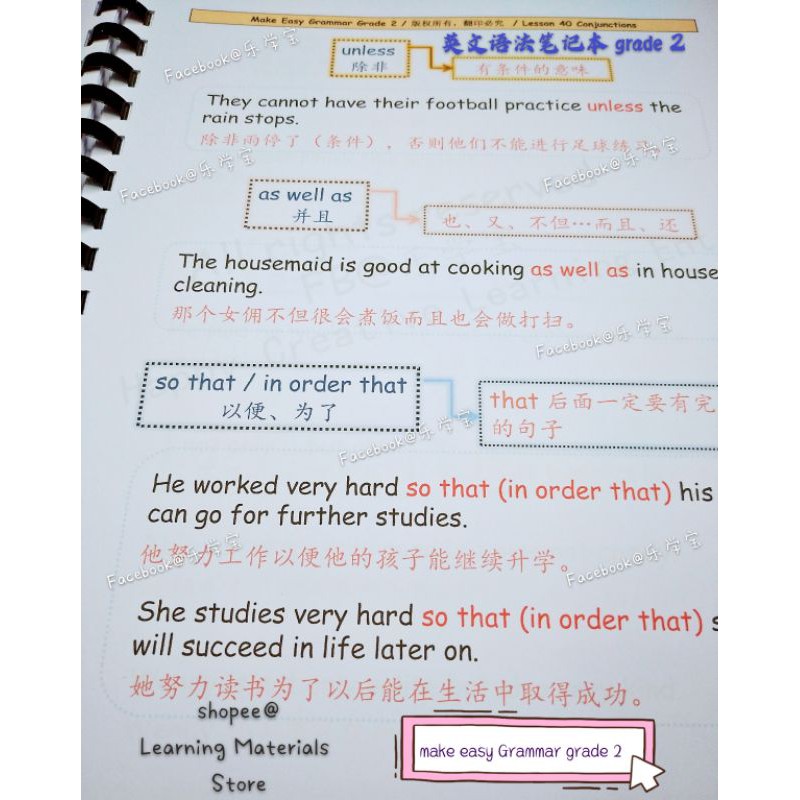 Make Easy Grammar Grade 2 / 版权所有，翻印必究 / Lesson 40 Conjunctions
Facebook@乐学宝
英文语法笔记本 grade 2
unless
除非
有条件的意味
They cannot have their football practice unless the
rain stops.
除非雨停了（条件），否则他们不能进行足球练习。
Facebook@乐学宝
Facebook@乐学宝
as well as
并且
也、又、不但…而且、还
The housemaid is good at cooking as well as in house
cleaning.
那个女佣不但很会煮饭而且也会做打扫。
Facebook@乐学宝
so that / in order that
以便、为了
that 后面一定要有完
的句子
Facebook@乐学宝
He worked very hard so that (in order that) his
can go for further studies.
他努力工作以便他的孩子能继续升学。
Facebook@乐学宝
Facebook@乐学宝
She studies very hard so that (in order that) s
will succeed in life later on.
她努力读书为了以后能在生活中取得成功。
shopee@
Learning Materials
Store
make easy Grammar grade 2